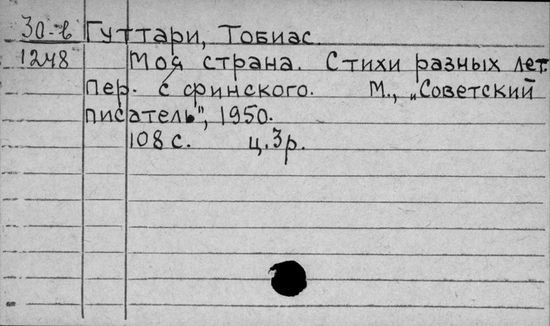 30-в Гуттари, Тобиас.
1248 Моя страна. Стихи разных лет.
Пер. с финского. М., „Советский
писатель", 1950.
108 с. ц. 3р.